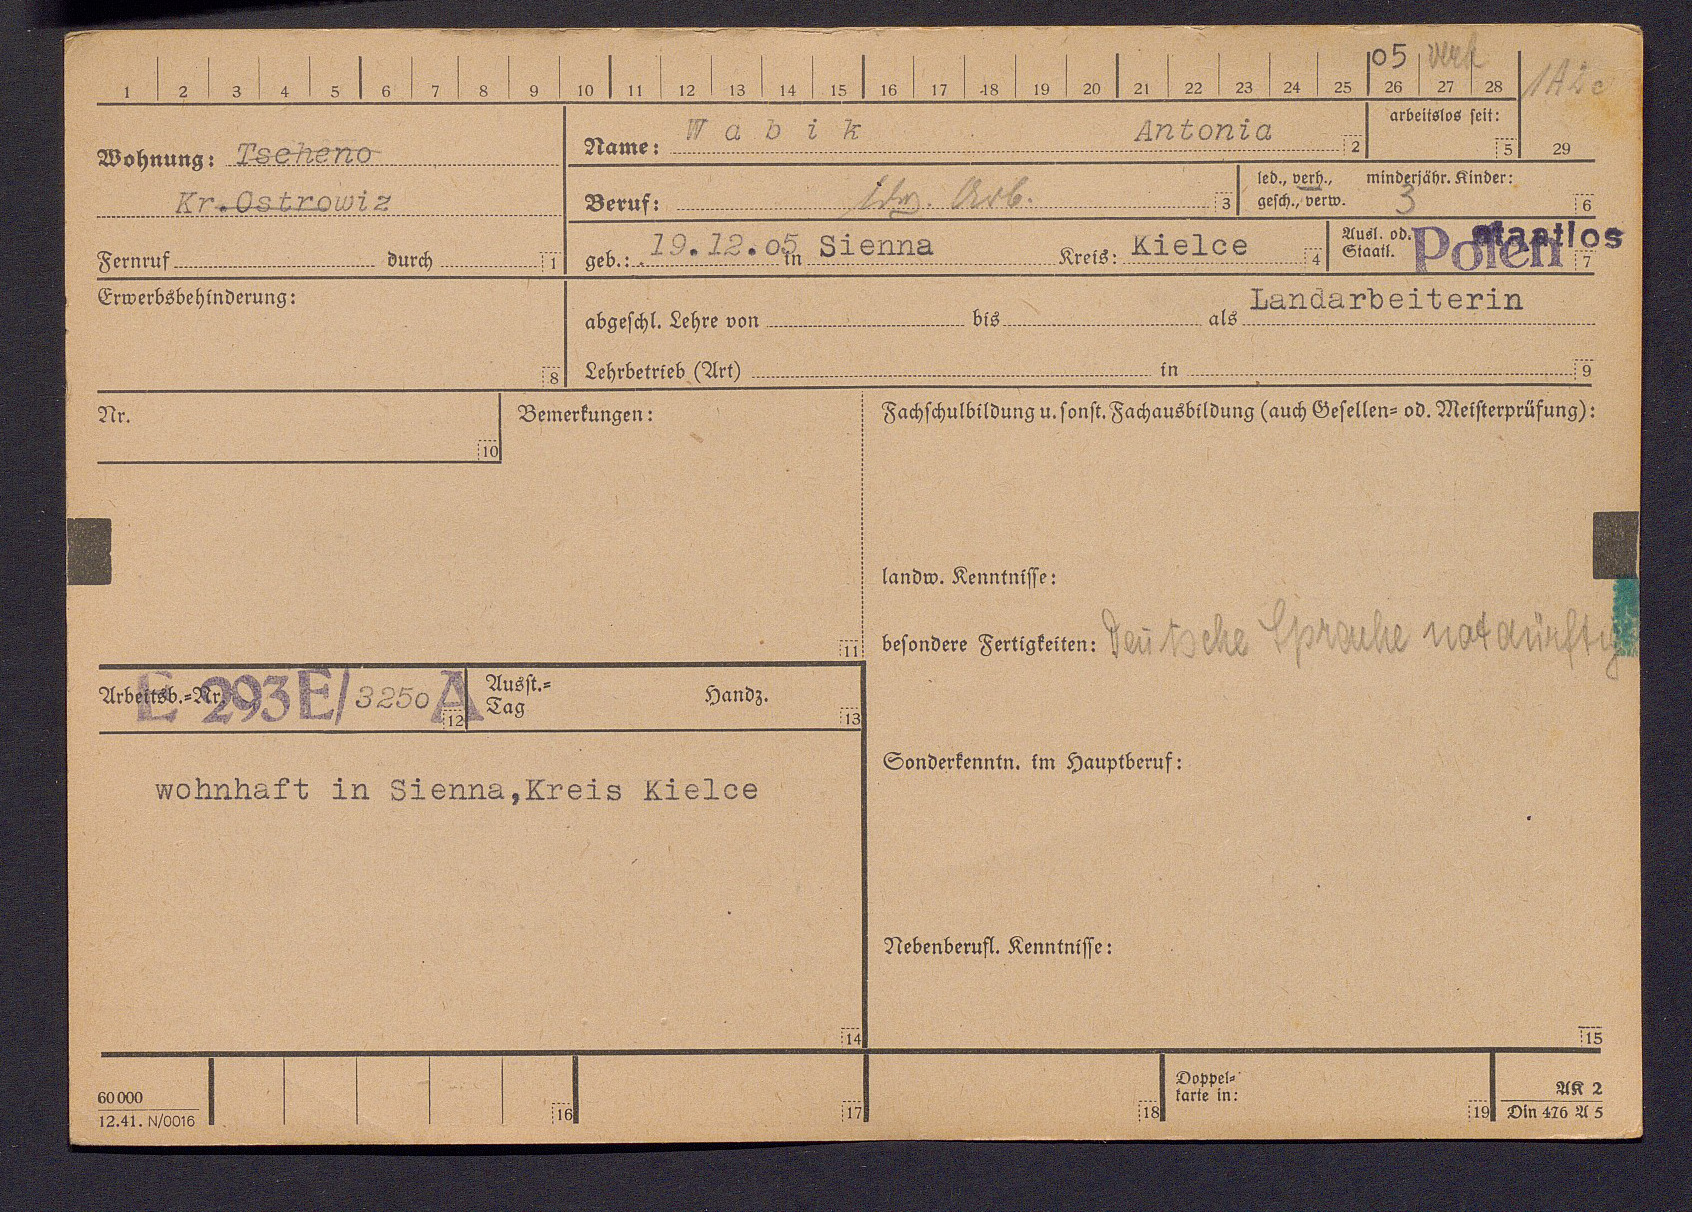 05 verh
1A2c
1 2 3 4 5 6 7 8 9 10 11 12 13 14 15 16 17 18 19 20 21 22 23 24 25 26 27 28
Wohnung: Tscheno
Kr. Ostrowiz
Fernruf durch 1
Name: Wabik Antonia 2
arbeitslos seit: 5
29
Beruf: ldw. Arb. 3
led., verh., minderjähr. Kinder:
gesch., verw. 3 6
geb.: 19.12.05 in Sienna Kreis: Kielce 4
Ausl. od. Staatl. Polen staatlos 7
Erwerbsbehinderung:
8
abgeschl. Lehre von bis als Landarbeiterin
Lehrbetrieb (Art) in 9
Nr.
10
Bemerkungen:
11
Fachschulbildung u. sonst. Fachausbildung (auch Gesellen= od. Meisterprüfung):
landw. Kenntnisse:
besondere Fertigkeiten: Deutsche Sprache notdürftig
Arbeitsb.=Nr. E 293E/3250 A 12
Ausst.=
Tag Handz. 13
wohnhaft in Sienna,Kreis Kielce
14
Sonderkenntn. im Hauptberuf:
Nebenberufl. Kenntnisse:
15
60000
12.41. N/0016
16 17 18
Doppel=
karte in: 19
AK 2
Din 476 A 5